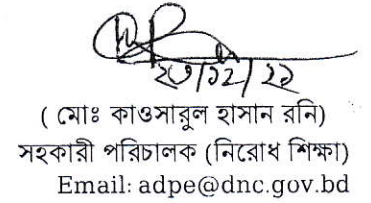 ২৩/১২/২১
( মোঃ কাওসারুল হাসান রনি)
সহকারী পরিচালক (নিরোধ শিক্ষা)
Email: adpe@dnc.gov.bd